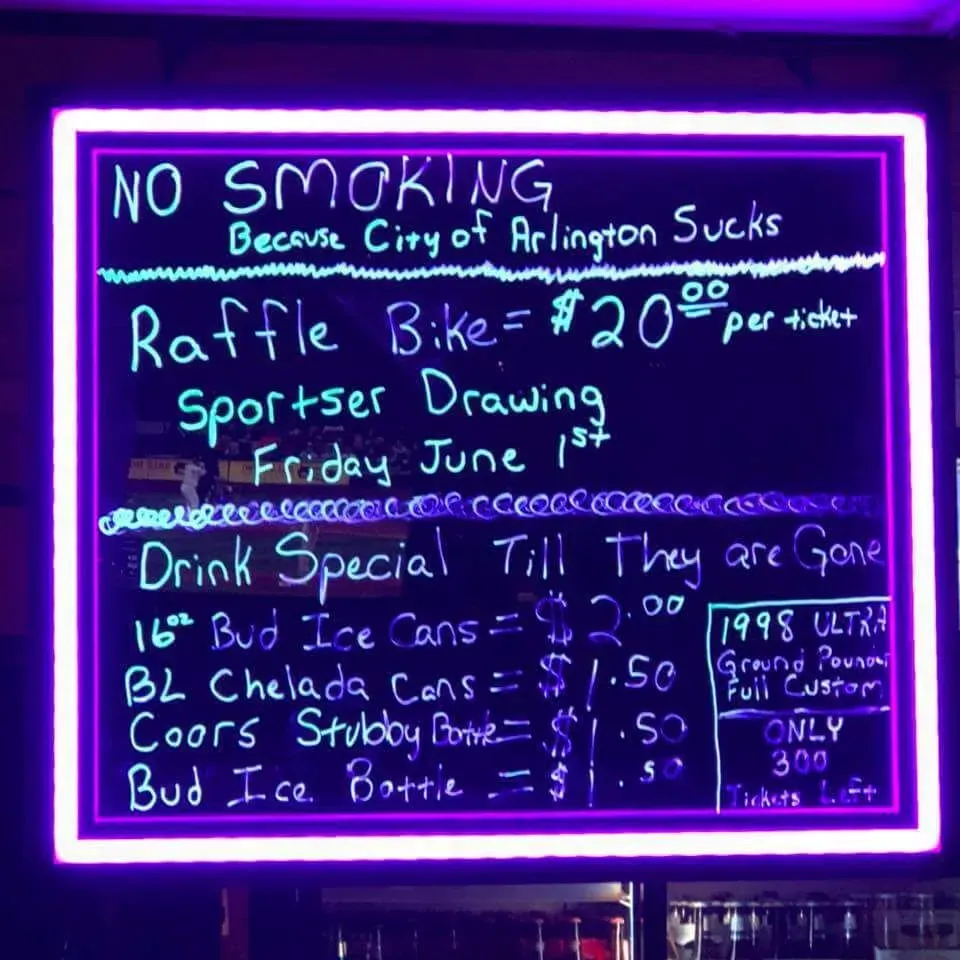 NO SMOKING
Because City of Arlington Sucks
Raffle Bike = $20.00 per ticket
Sportser Drawing
Friday June 1st
Drink Special Till They are Gone
16oz Bud Ice Cans = $2.00
BL Chelada Cans = $1.50
Coors Stubby Bottle = $1.50
Bud Ice Bottle = $1.50
1998 ULTRA
Ground Pounder
Full Custom
ONLY
300
Tickets Left